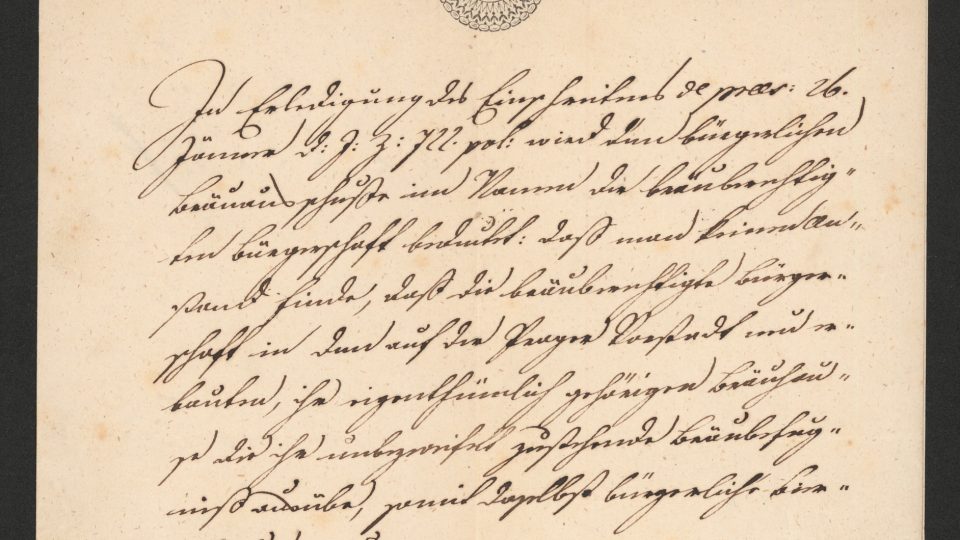 In Erledigung des Einschreitens de praes: 26.
Jänner d: J: Z: 722. pol: wird dem bürgerlichen
Bräuausschuße im Namen der bräuberechtig-
ten Bürgerschaft bedeutet: daß man keinen An-
stand finde, daß die bräuberechtigte Bürger-
schaft in dem auf der Prager Vorstadt neu er-
bauten, ihr eigenthümlich gehörigen Bräuhau-
se die ihr unbezweifelt zustehende Bräubefug-
niß ausübe, somit daselbst bürgerliche Bier-